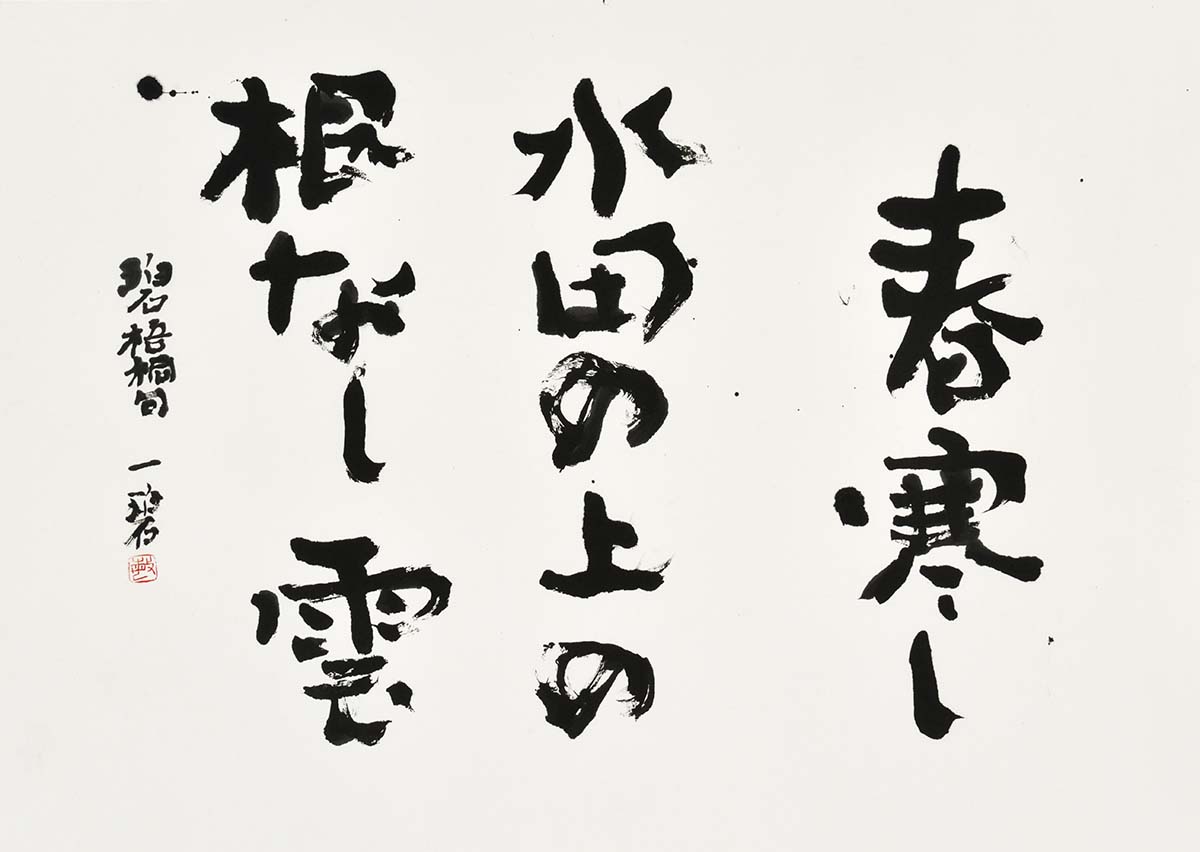 春寒し
水田の上の
根なし雲
碧梧桐句 一碧